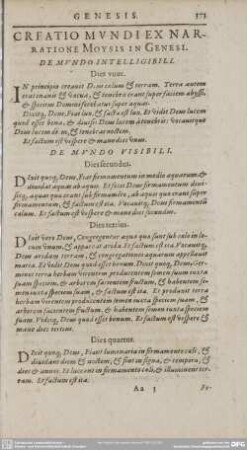 GENESIS.
CREATIO MVNDI EX NAR-
RATIONE MOYSIS IN GENESI.
DE MVNDO INTELLIGIBILI.
Dies vnus.
IN principio creauit Deus cœlum & terram. Terra autem
erat inanis & vacua, & tenebræ erant super faciem abyssi,
& spiritus Domini ferebatur super aquas.
Dixitq́; Deus, Fiat lux, & facta est lux. Et vidit Deus lucem
quod esset bona, & diuisit Deus lucem à tenebris: vocauitque
Deus lucem diem, & tenebras noctem.
Et factum est vespere & mane dies vnus.
DE MVNDO VISIBILI.
Dies secundus.
Dixit quoq; Deus, Fiat firmamentum in medio aquarum, &
diuidat aquas ab aquis. Et fecit Deus firmamentum diui-
sitq; aquas quæ erant sub firmamento, ab aquis quæ erant super
firmamentum, & factum est ita. Vocauitq; Deus firmamentũ
cœlum. Et factum est vespere & mane dies secundus.
Dies tertius.
Dixit vero Deus, Congregentur aquæ quæ sunt sub cœlo in lo-
cum vnum, & appareat arida. Et factum est ita. Vocauitq;
Deus aridam terram, & congregationes aquarum appellauit
maria. Et vidit Deus quod esset bonum. Dixit quoq; Deus, Ger-
minet terra herbam virentem producentem semen suum iuxta
suam speciem, & arborem facientem fructum, & habentem se-
men iuxta speciem suam, & factum est ita. Et produxit terra
herbam virentem producentem semen iuxta speciem suam, &
arborem facientem fructum, & habentem semen iuxta speciem
suam. Viditq; Deus quod esset bonum. Et factum est vespere &
mane dies tertius.
Dies quartus.
Dixit quoq; Deus, Fiant luminaria in firmamento cœli, &
diuidant diem & noctem, & sint in signa, & tempora, &
dies & annos. Et luceant in firmamento cœli, & illuminent ter-
ram. Et factum est ita.
Aa 3 Fe-